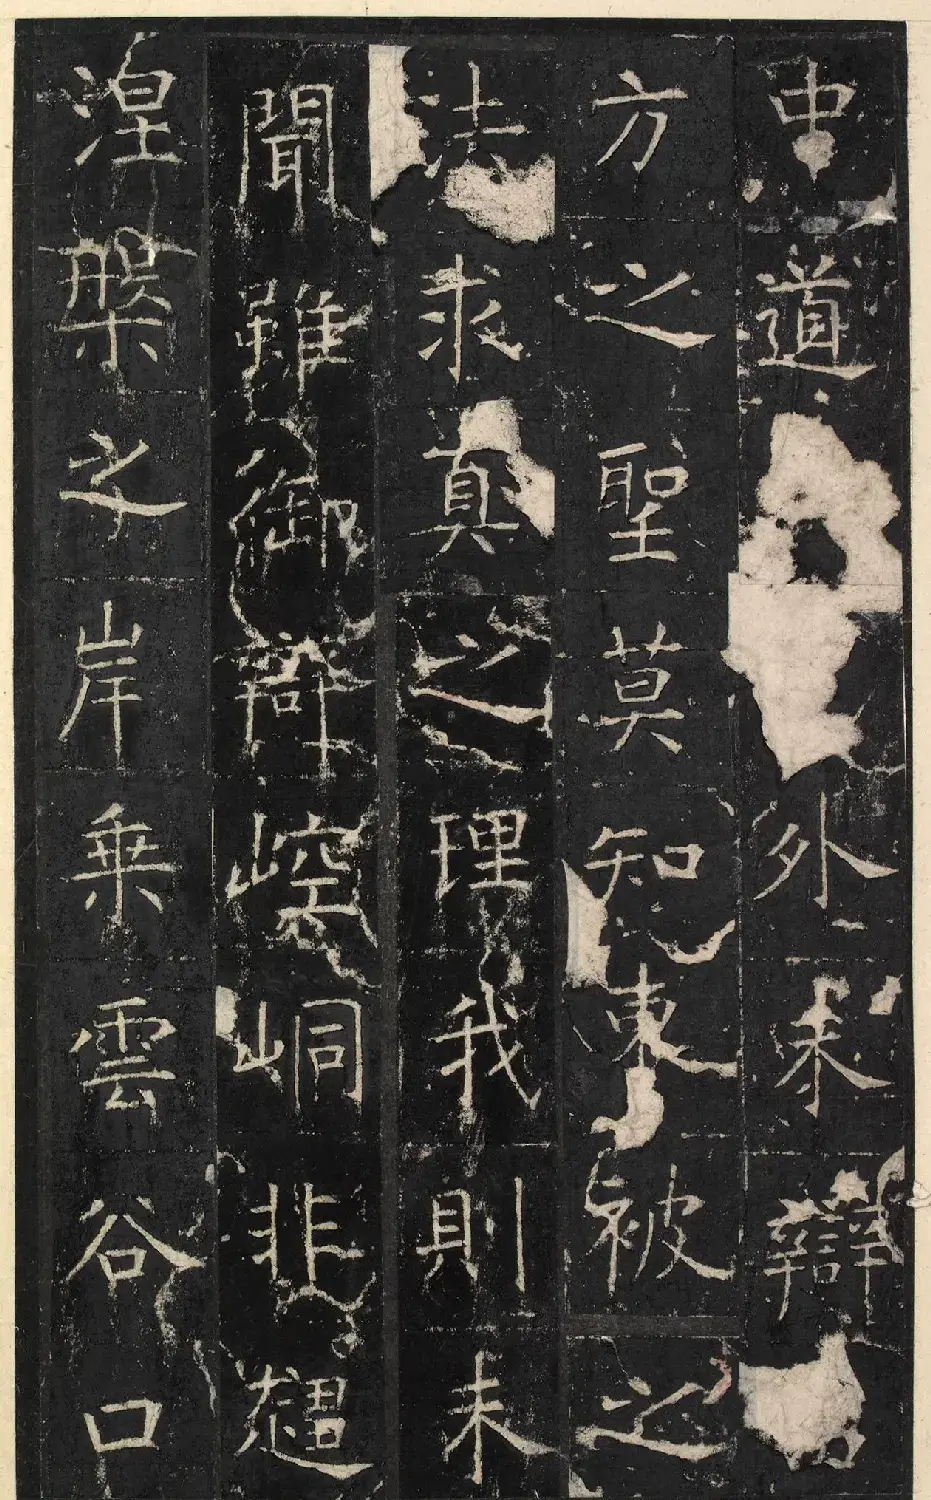 中道外未辯
方之聖莫知東被之
法求真之理我則未
聞雖御辯崆峒非趨
涅槃之岸乘雲谷口